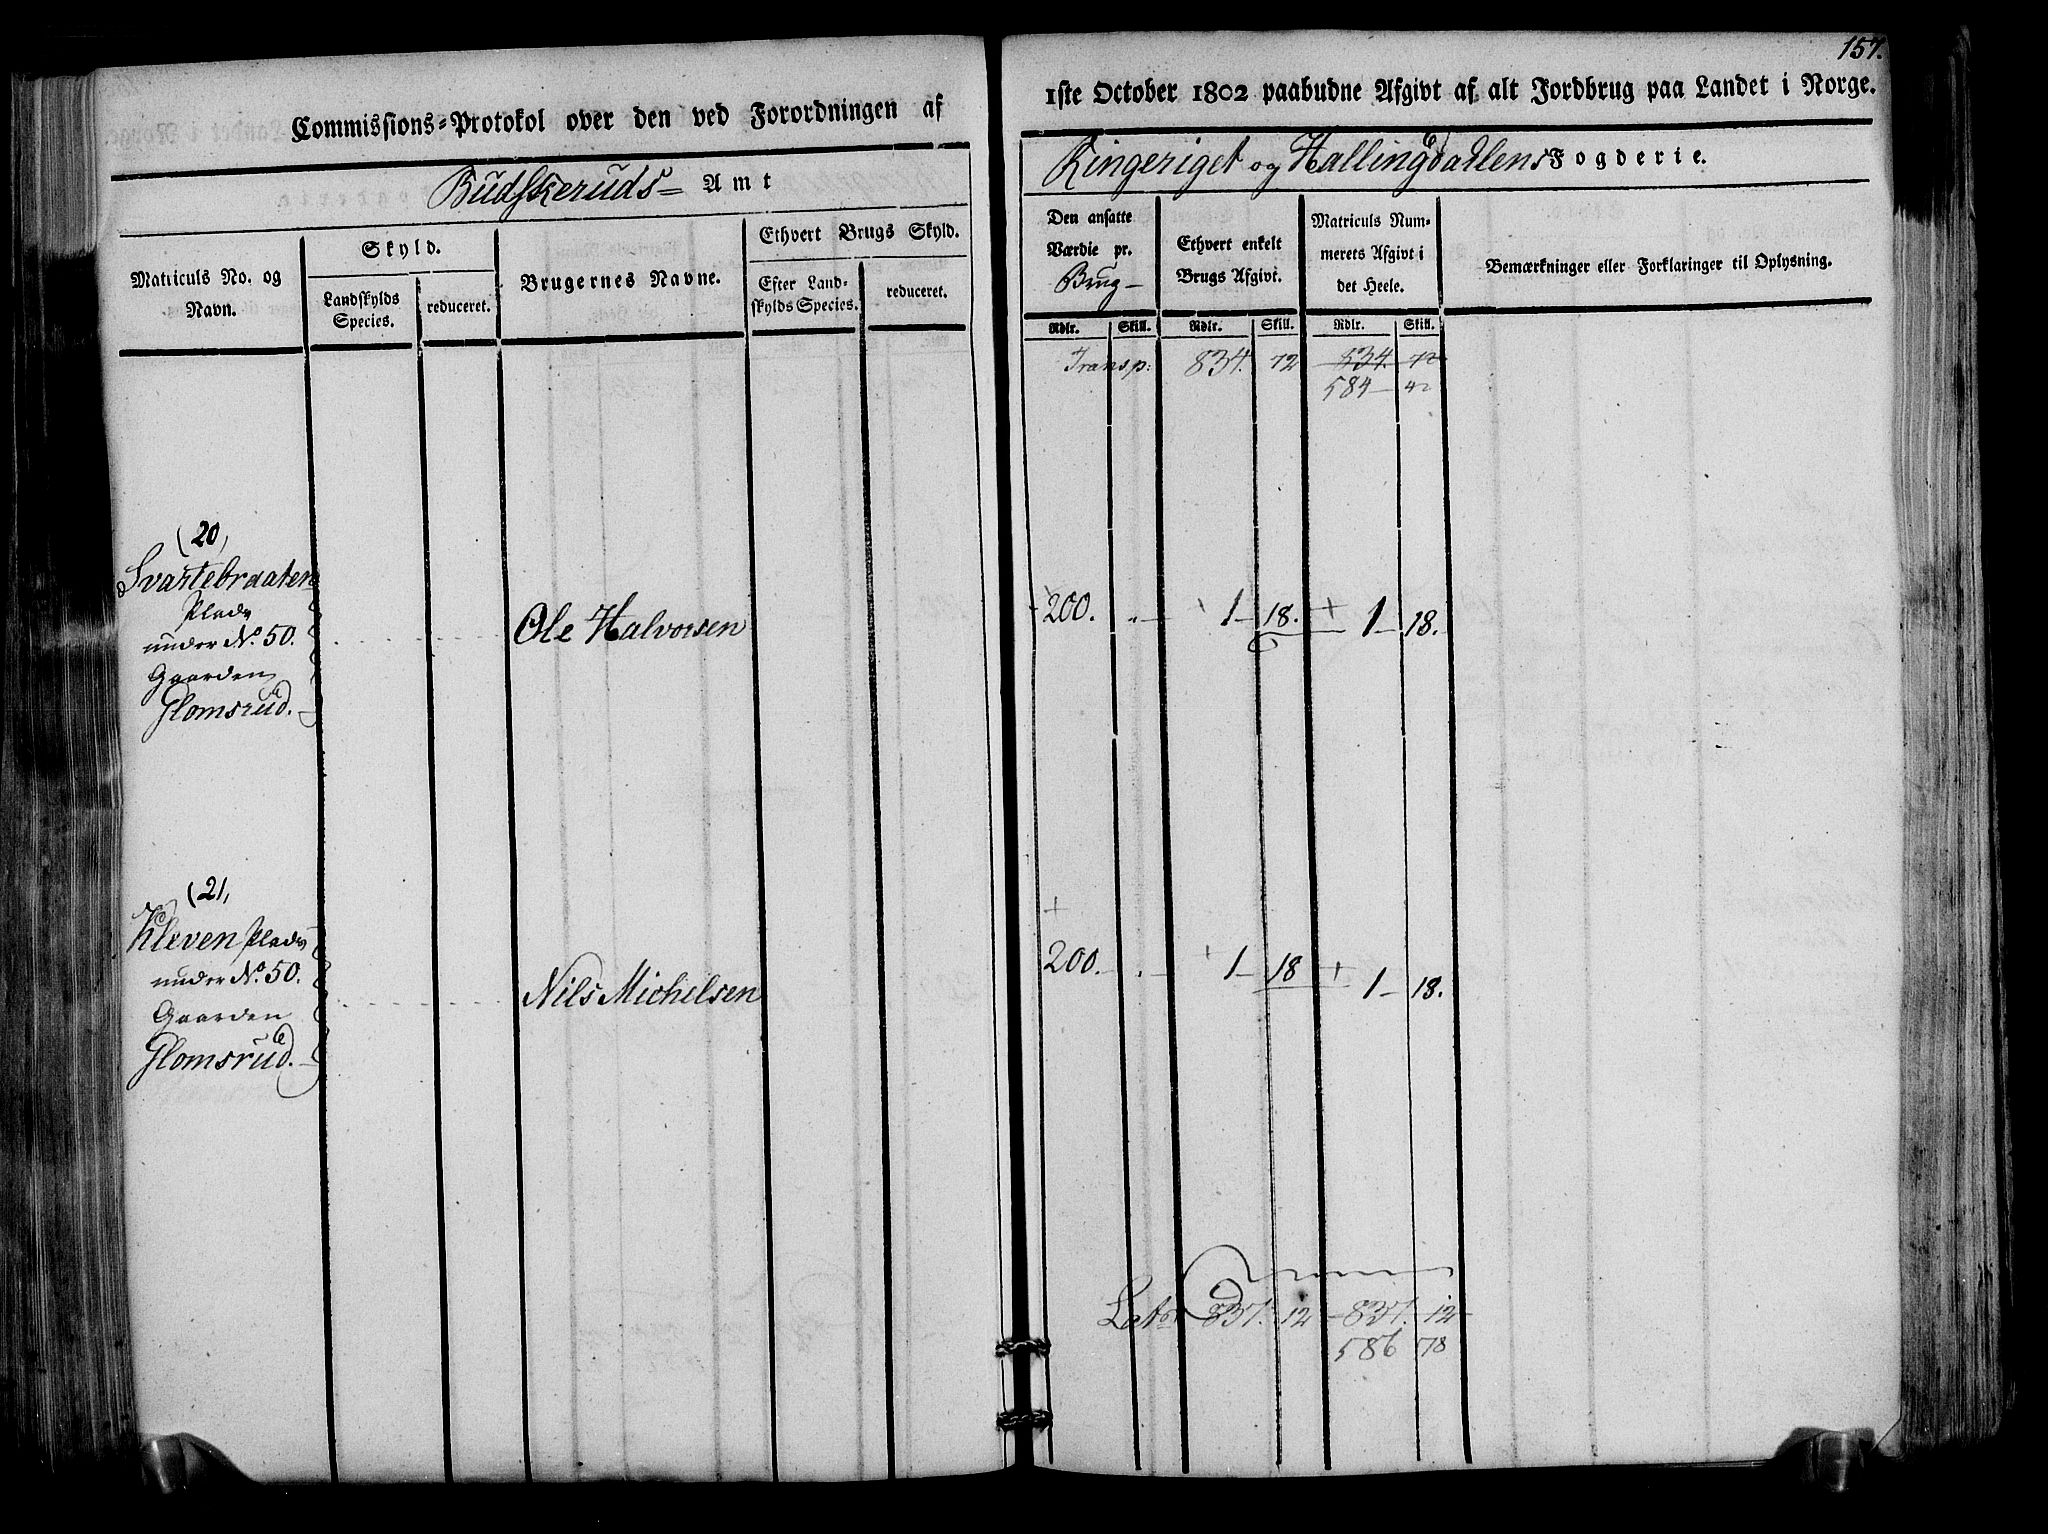 157.
Commissions=Protokol over den ved Forordningen af
1ste October 1802 paabudne Afgivt af alt Jordbrug paa Landet i Norge.
Budskeruds= Amt
Ringeriget og Hallingdahlens Fogderie.
Matriculs No. og Navn.
Skyld.
Landskylds Species.
reduceret.
Brugernes Navne.
Ethvert Brugs Skyld.
Efter Landskylds Species.
reduceret.
Den ansatte Værdie pr. Brug-
Ethvert enkelt Brugs Afgivt.
Matriculs Nummerets Afgivt i det Heele.
Bemærkninger eller Forklaringer til Oplysning.
Rdlr. Skill. Rdlr. Skill. Rdlr. Skill.
Transp: 834. 72 834. 72
584 - 42
(20,
Svartebraaten
Plads
under No. 50.
Gaarden
Glomsrud.
Ole Halvorsen
200. „ - 1 - 18. + 1 - 18.
(21,
Kleven Plads
under No. 50.
Gaarden
Glomsrud.
Nils Michelsen
200. - „ - 1 - 18 + 1 - 18.
Lat. 837. 12 - 837. 12
586 78